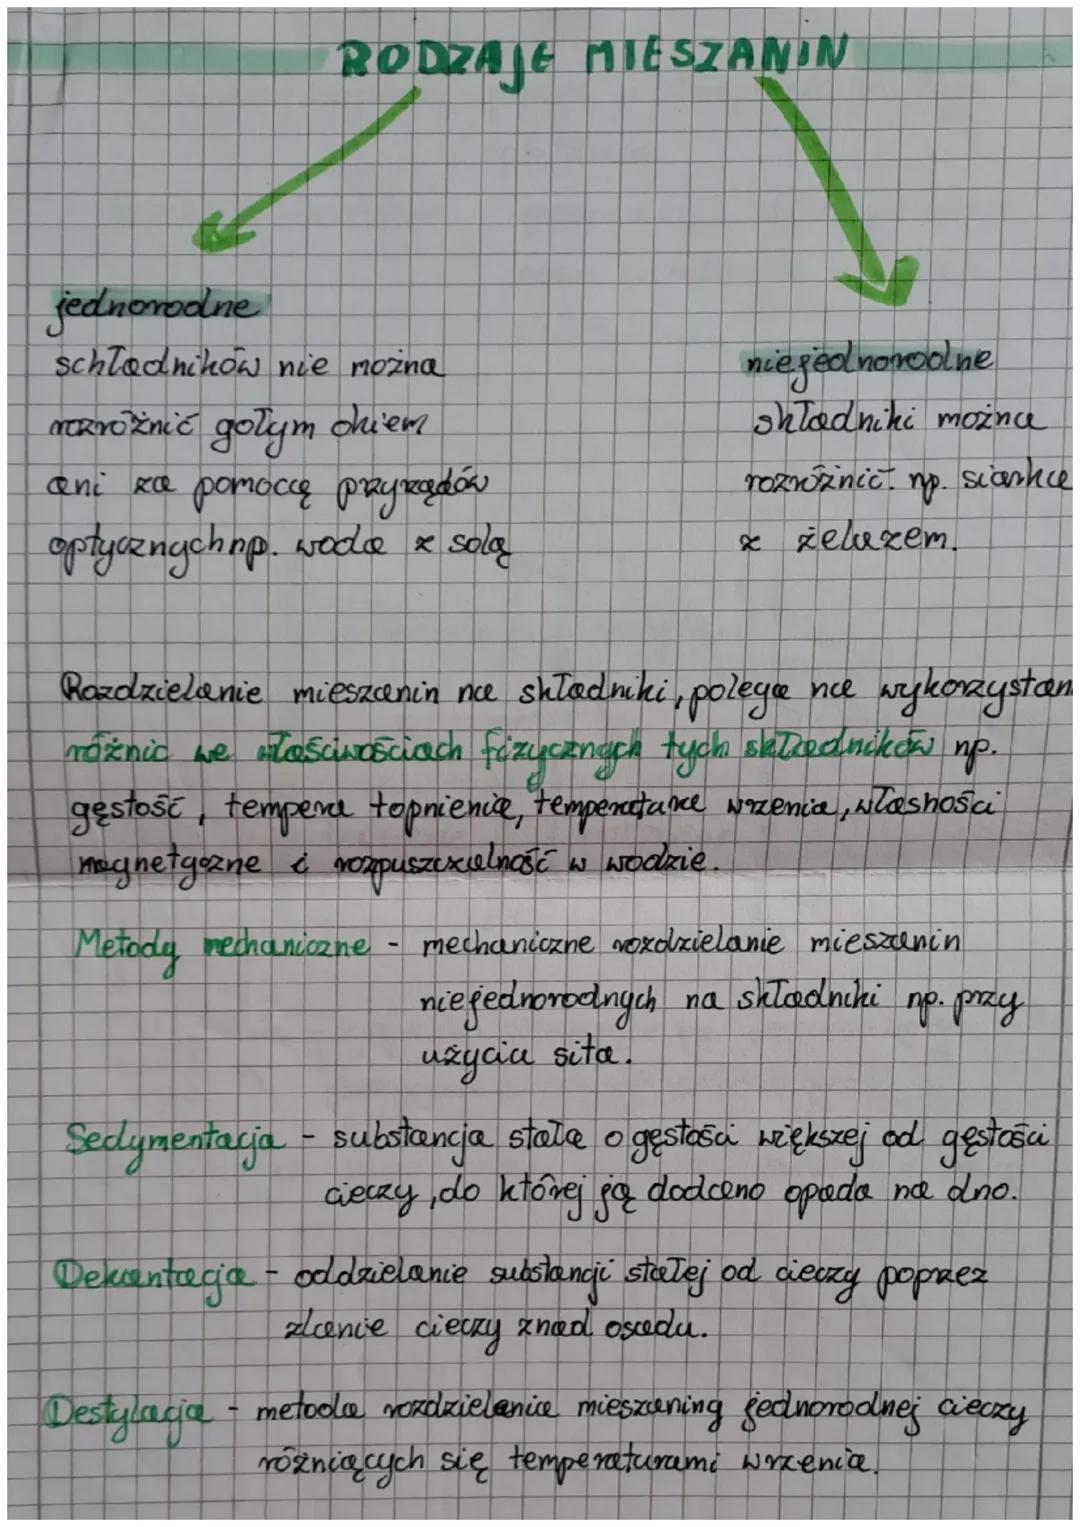 RODZAJE MIESZANIN
jednorodne
schładników nie można
rozróżnić gołym okiem
ani za pomoccą przyrządów
optycznych np. woda z solą
niejednorodne
składniki można
rozróżnić. np. siarka
z żelazem.
Rozdzielanie mieszanin na składniki, polega na wykorzystan
różnic we właściwościach fizycznych tych składników np.
gęstość, tempera topnienia, temperatura wrzenia, własności
magnetyczne i rozpuszczalność w wodzie.
Metody mechaniczne - mechaniczne rozdzielanie mieszanin
niejednorodnych na składniki np. przy
użyciu sita.
Sedymentacja - substancja stała o gęstości większej od gęstości
cieczy, do której ją dodano opada na dno.
Dekantacja - oddzielanie substancji stałej od cieczy poprzez
zlanie cieczy znad osadu.
Destylacja - metoda rozdzielania mieszaniny jednorodnej cieczy
różniących się temperaturami wrzenia.